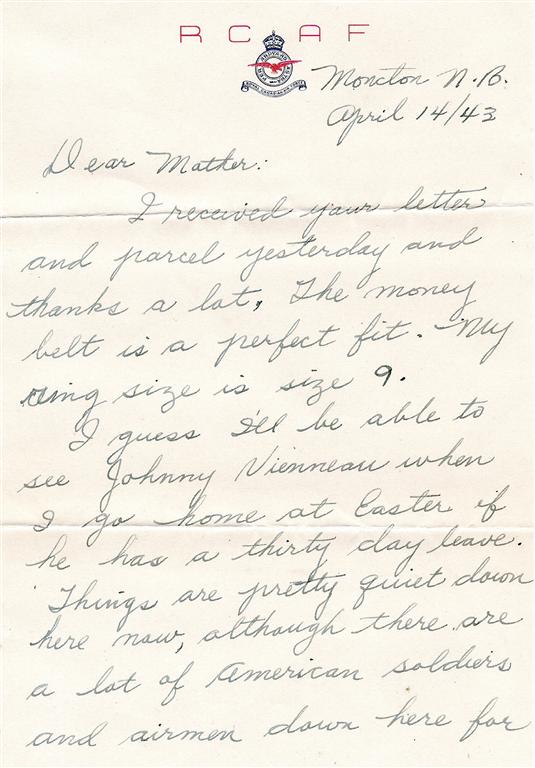 R C A F
ROYAL CANADIAN AIR FORCE
Moncton N.B.
April 14/43
Dear Mother:
I received your letter
and parcel yesterday and
thanks a lot. The money
belt is a perfect fit. My
ring size is size 9.
I guess I'll be able to
see Johnny Vienneau when
I go home at Easter if
he has a thirty day leave.
Things are pretty quiet down
here now, although there are
a lot of American soldiers
and airmen down here for